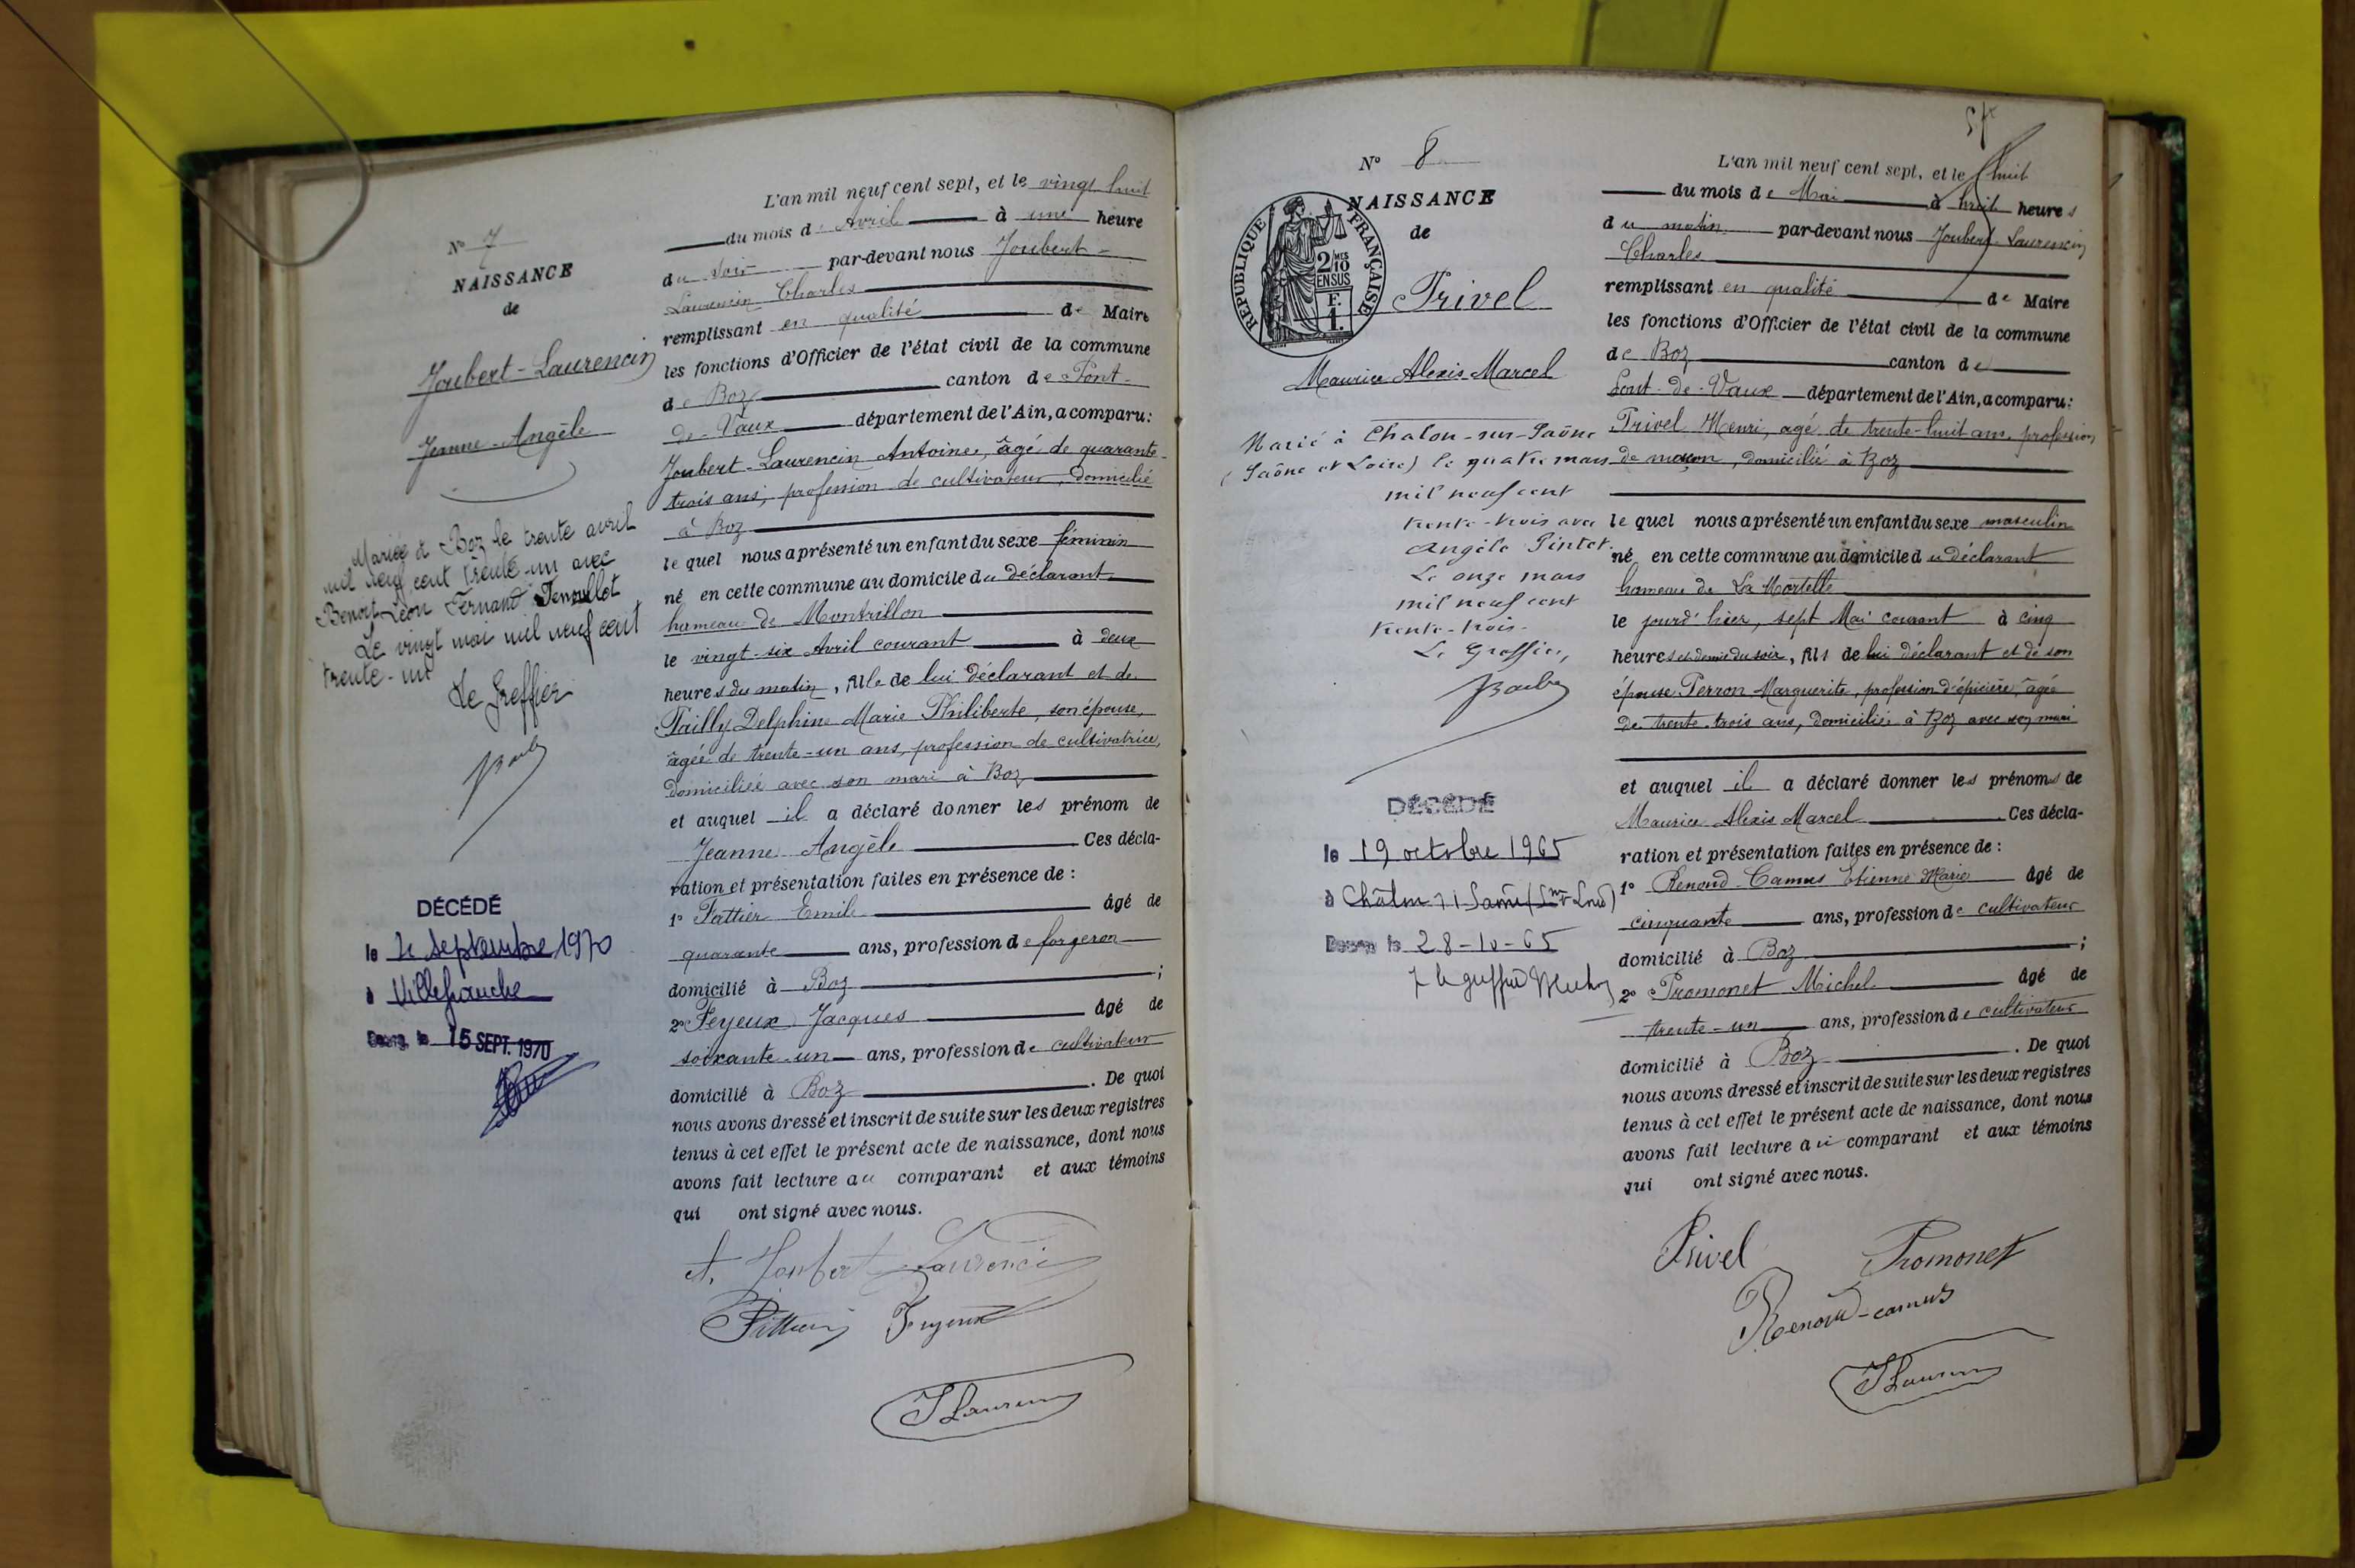 N° 7
NAISSANCE
de
Joubert-Laurencin
Jeanne-Angèle
Mariée à Boz le trente avril
mil neuf cent trente-un avec
Benoit Léon Fernand
Le vingt mai mil neuf cent
trente-un
Le Greffier
DÉCÉDÉ
le septembre 1970
à Villefranche
le 15 SEPT. 1970
L'an mil neuf cent sept, et le vingt huit
du mois de Avril à une heure
du soir par-devant nous Joubert-
Laurencin Charles
remplissant en qualité de Maire
les fonctions d'Officier de l'état civil de la commune
de Boz canton de Pont-
de-Vaux département de l'Ain, a comparu:
Joubert-Laurencin Antoine, âgé de quarante-
trois ans, profession de cultivateur, domicilié
à Boz
le quel nous a présenté un enfant du sexe féminin
né en cette commune au domicile du déclarant
hameau de Montrillon
le vingt-six Avril courant à deux
heures du matin, fille de lui déclarant et de
Pailly Delphine Marie Philiberte, son épouse,
âgée de trente-un ans, profession de cultivatrice,
domiciliée avec son mari à Boz
et auquel il a déclaré donner les prénom de
Jeanne Angèle Ces décla-
ration et présentation faites en présence de :
1° Emile âgé de
quarante ans, profession de forgeron
domicilié à Boz ;
2° Feyeux Jacques âgé de
soixante-un ans, profession de cultivateur
domicilié à Boz . De quoi
nous avons dressé et inscrit de suite sur les deux registres
tenus à cet effet le présent acte de naissance, dont nous
avons fait lecture au comparant et aux témoins
qui ont signé avec nous.
A. Joubert Laurenci
Feyeux
N° 8
NAISSANCE
de
RÉPUBLIQUE FRANÇAISE
2/MES
10
EN SUS
F.
1.
Privel
Maurice Alexis-Marcel
Marié à Chalon-sur-Saône
(Saône et Loire) le quatre mars
mil neuf cent
trente-trois avec
Angèle Pintet.
Le onze mars
mil neuf cent
trente-trois.
Le Greffier,
DÉCÉDÉ
le 19 octobre 1965
à Châlon s/ Saône
le 28-10-65
L'an mil neuf cent sept, et le huit
du mois de Mai à huit heures
du matin par-devant nous Joubert-Laurencin
Charles
remplissant en qualité de Maire
les fonctions d'Officier de l'état civil de la commune
de Boz canton de
Pont-de-Vaux département de l'Ain, a comparu:
Privel Henri, âgé de trente-huit ans, profession
de maçon, domicilié à Boz
le quel nous a présenté un enfant du sexe masculin
né en cette commune au domicile du déclarant
hameau de La Mortelle
le jourd'hier, sept Mai courant à cinq
heures et demie du soir, fils de lui déclarant et de son
épouse Perron Marguerite, profession d'épicière âgée
de trente-trois ans, domiciliée à Boz avec son mari
et auquel il a déclaré donner les prénoms de
Maurice Alexis Marcel . Ces décla-
ration et présentation faites en présence de :
1° Renoud-Camus Etienne Marie âgé de
cinquante ans, profession de cultivateur
domicilié à Boz ;
2° Promonet Michel âgé de
trente-un ans, profession de cultivateur
domicilié à Boz . De quoi
nous avons dressé et inscrit de suite sur les deux registres
tenus à cet effet le présent acte de naissance, dont nous
avons fait lecture au comparant et aux témoins
qui ont signé avec nous.
Privel Promonet
Renoud-camus